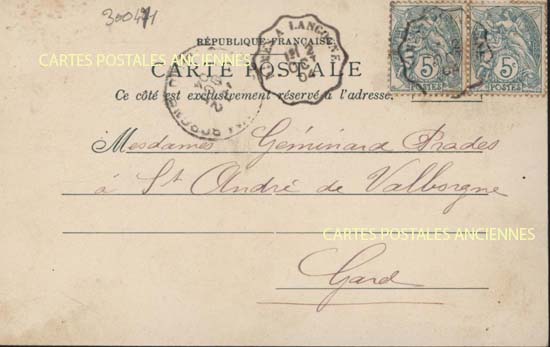 30041
CARTES POSTALES ANCIENNES
RÉPUBLIQUE FRANÇAISE
CARTE POSTALE
Ce côté est exclusivement réservé à l'adresse.
A LANGOGNE
5c 5c
POSTES POSTES
Mesdames Géminard Prades
à St André de Valborgne
CARTES POSTALES ANCIENNES
Gard